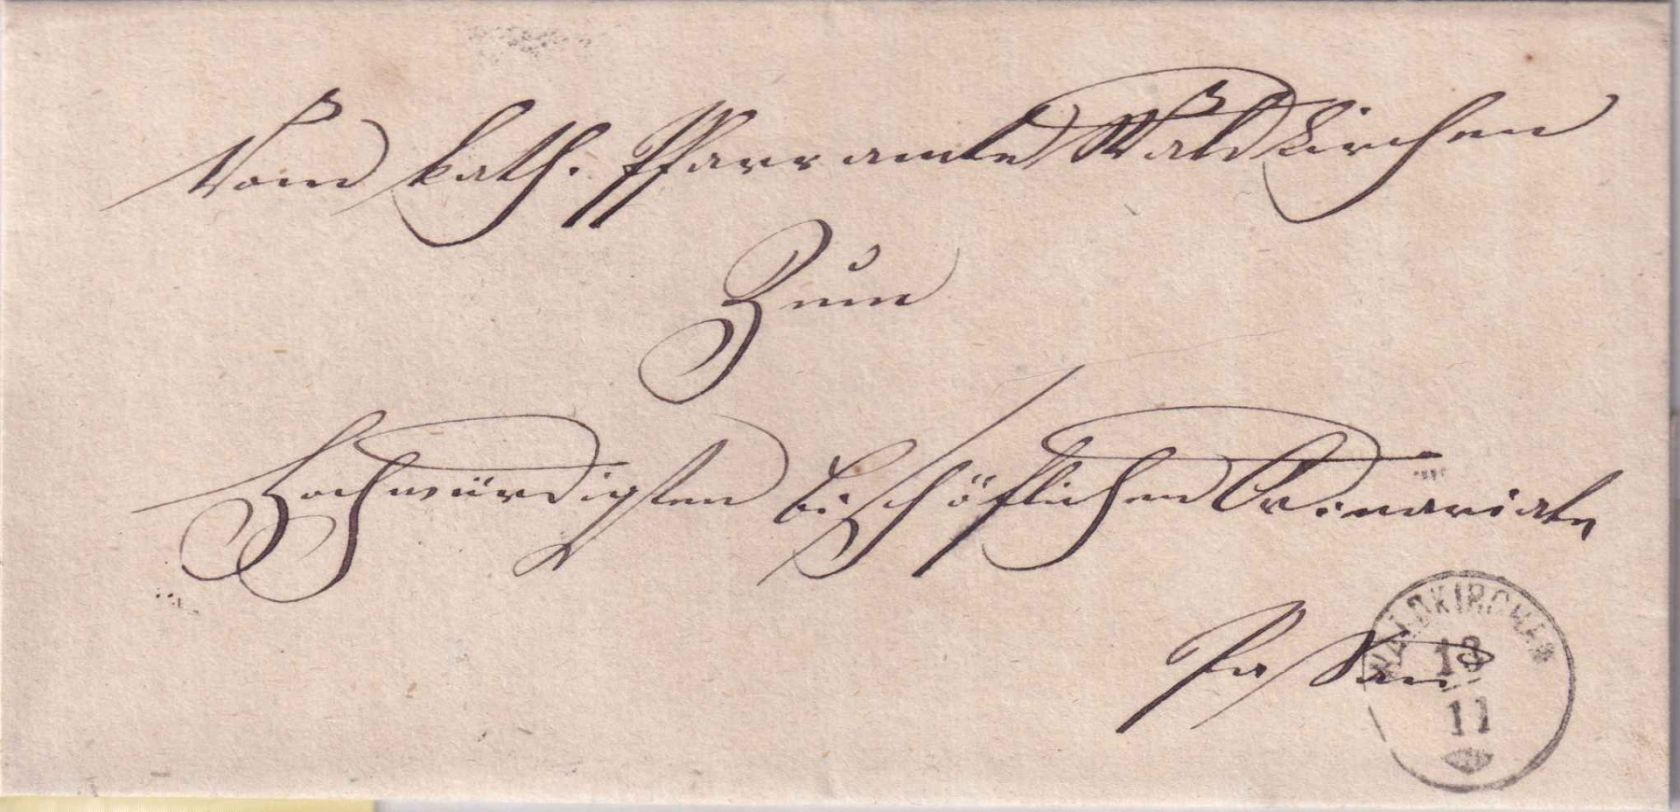 Vom kath. Pfarramte Waldkirchen
Zum
Hochwürdigsten bischöflichen Ordinariate
Passau
WALDKIRCHEN
13
11